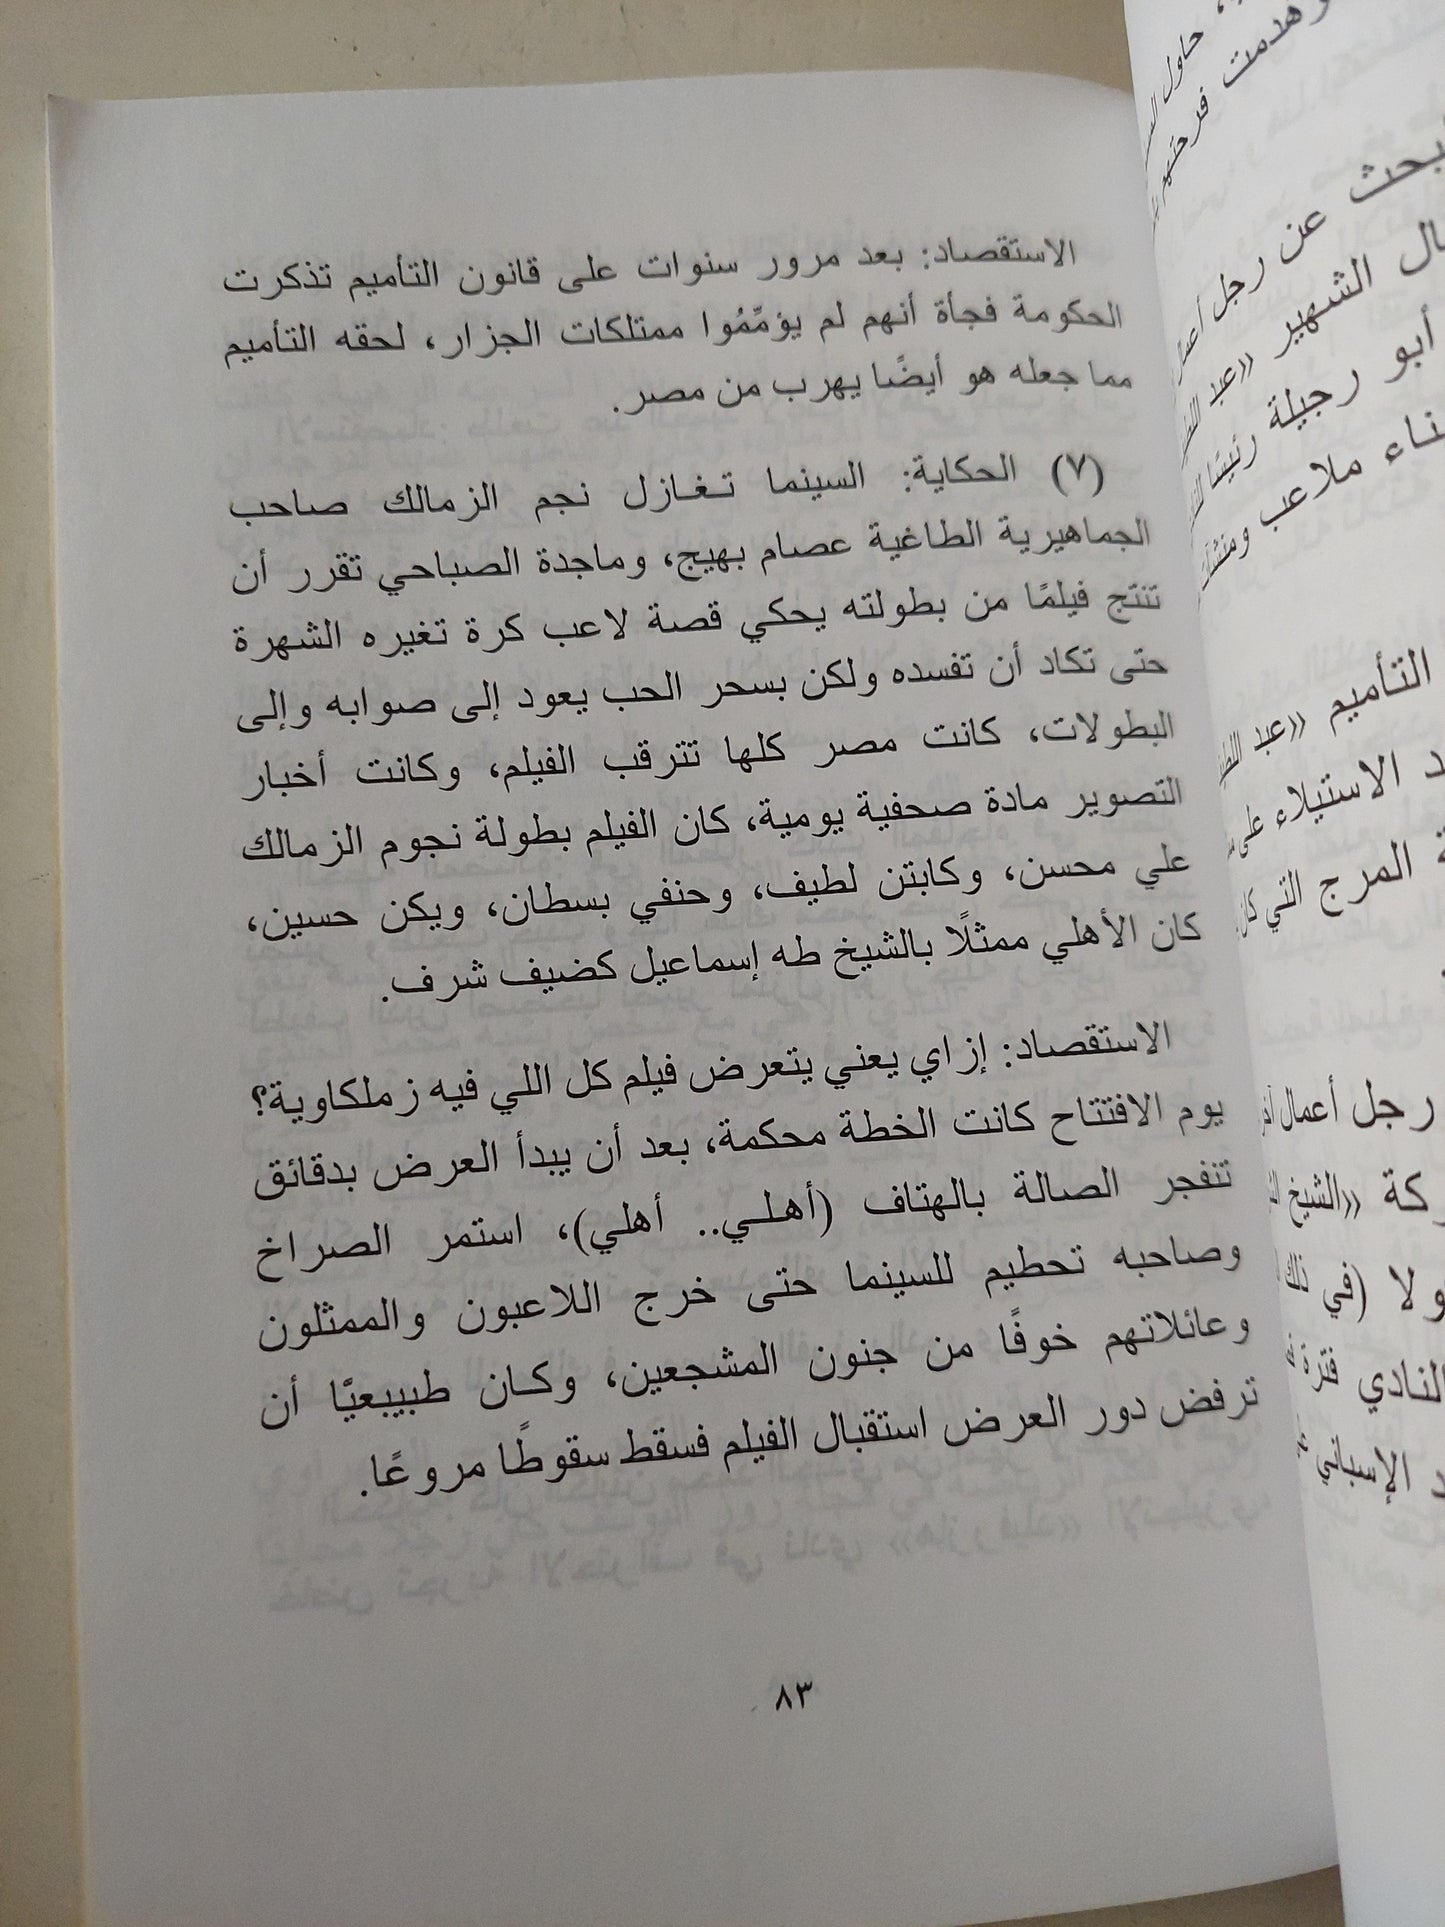 الاستقصاد: بعد مرور سنوات على قانون التأميم تذكرت
الحكومة فجأة أنهم لم يؤمِّمُوا ممتلكات الجزار، لحقه التأميم
مما جعله هو أيضًا يهرب من مصر.
(٧) الحكاية: السينما تغازل نجم الزمالك صاحب
الجماهيرية الطاغية عصام بهيج، وماجدة الصباحي تقرر أن
تنتج فيلمًا من بطولته يحكي قصة لاعب كرة تغيره الشهرة
حتى تكاد أن تفسده ولكن بسحر الحب يعود إلى صوابه وإلى
البطولات، كانت مصر كلها تترقب الفيلم، وكانت أخبار
التصوير مادة صحفية يومية، كان الفيلم بطولة نجوم الزمالك
علي محسن، وكابتن لطيف، وحنفي بسطان، ويكن حسين،
كان الأهلي ممثلًا بالشيخ طه إسماعيل كضيف شرف.
الاستقصاد: إزاي يعني يتعرض فيلم كل اللي فيه زملكاوية؟
يوم الافتتاح كانت الخطة محكمة، بعد أن يبدأ العرض بدقائق
تنفجر الصالة بالهتاف (أهلي.. أهلي)، استمر الصراخ
وصاحبه تحطيم للسينما حتى خرج اللاعبون والممثلون
وعائلاتهم خوفًا من جنون المشجعين، وكان طبيبعيًّا أن
ترفض دور العرض استقبال الفيلم فسقط سقوطًا مروعًا.
٨٣
حاول
هدمت فرحتهم
بحث عن رجل أعمال
الشهير «عبد اللطيف
أبو رجيلة رئيسًا
ملاعب
التأميم «عبد اللطيف
الاستيلاء على
المرج التي
رجل أعمال
«الشيخ
(في ذلك
النادي فترة
الإسباني